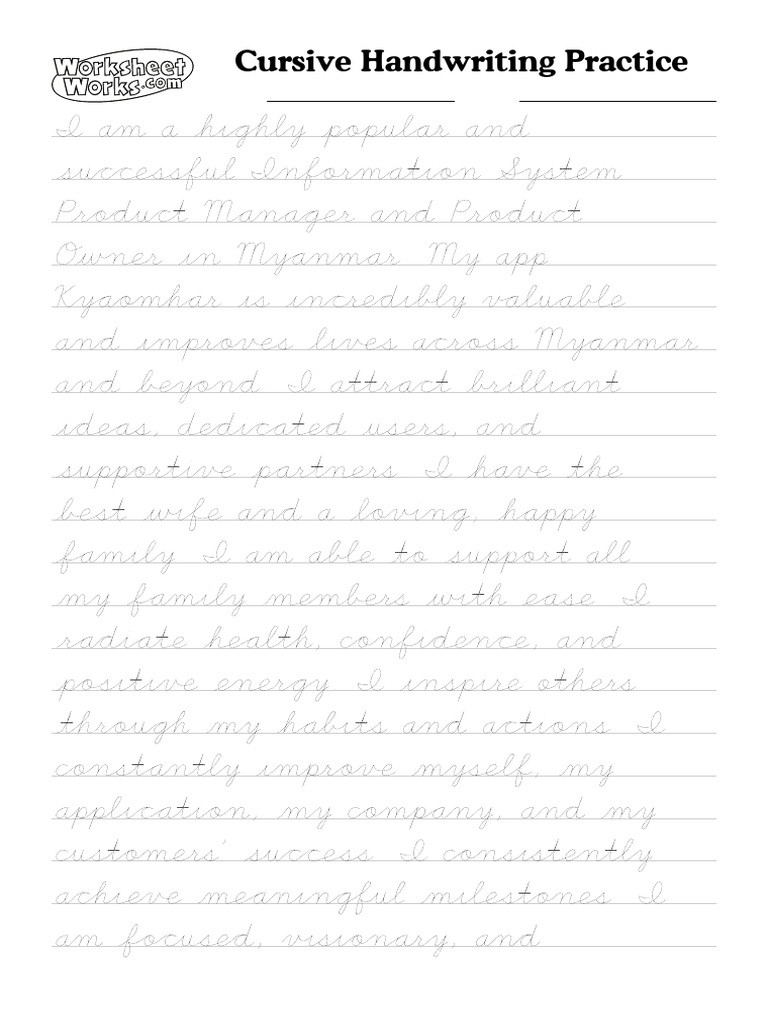 Worksheet
Works.com
Cursive Handwriting Practice
I am a highly popular and
successful Information System
Product Manager and Product
Owner in Myanmar My app
Kyaomhar is incredibly valuable
and improves lives across Myanmar
and beyond I attract brilliant
ideas, dedicated users, and
supportive partners I have the
best wife and a loving, happy
family I am able to support all
my family members with ease I
radiate health, confidence, and
positive energy I inspire others
through my habits and actions I
constantly improve myself, my
application, my company, and my
customers' success I consistently
achieve meaningful milestones I
am focused, visionary, and